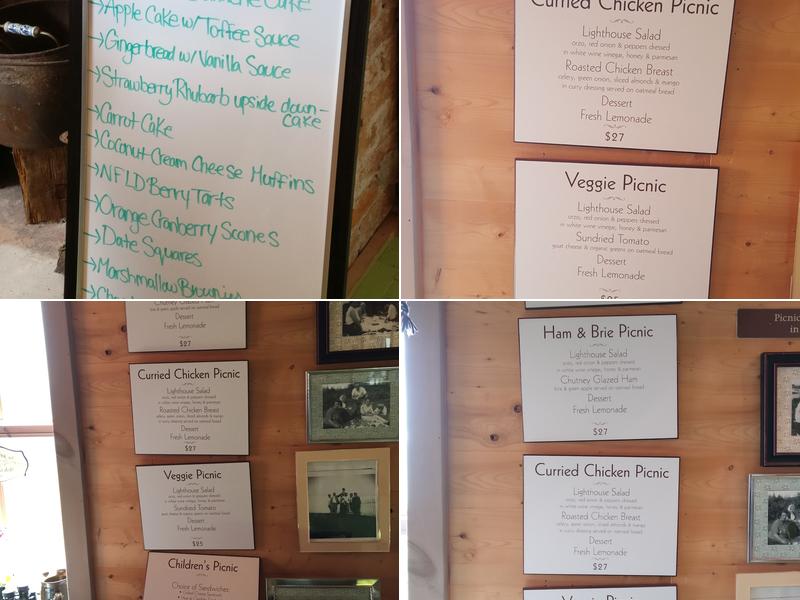 →Apple Cake w/ Toffee Sauce
→Gingerbread w/ Vanilla Sauce
→Strawberry Rhubarb upside down-
cake
→Carrot Cake
→Coconut Cream Cheese Muffins
→NFLD Berry Tarts
→Orange Cranberry Scones
→Date Squares
→Marshmallow Brownies
Curried Chicken Picnic
Lighthouse Salad
orzo, red onion & peppers dressed
in white wine vinegar, honey & parmesan
Roasted Chicken Breast
celery, green onion, sliced almonds & mango
in curry dressing served on oatmeal bread
Dessert
Fresh Lemonade
$27
Veggie Picnic
Lighthouse Salad
orzo, red onion & peppers dressed
in white wine vinegar, honey & parmesan
Sundried Tomato
goat cheese & organic greens on oatmeal bread
Dessert
Fresh Lemonade
$25
Chutney Glazed Ham
brie & green apple served on oatmeal bread
Dessert
Fresh Lemonade
$27
Curried Chicken Picnic
Lighthouse Salad
orzo, red onion & peppers dressed
in white wine vinegar, honey & parmesan
Roasted Chicken Breast
celery, green onion, sliced almonds & mango
in curry dressing served on oatmeal bread
Dessert
Fresh Lemonade
$27
Veggie Picnic
Lighthouse Salad
orzo, red onion & peppers dressed
in white wine vinegar, honey & parmesan
Sundried Tomato
goat cheese & organic greens on oatmeal bread
Dessert
Fresh Lemonade
$25
Children's Picnic
Choice of Sandwiches:
Ham & Brie Picnic
Lighthouse Salad
orzo, red onion & peppers dressed
in white wine vinegar, honey & parmesan
Chutney Glazed Ham
brie & green apple served on oatmeal bread
Dessert
Fresh Lemonade
$27
Curried Chicken Picnic
Lighthouse Salad
orzo, red onion & peppers dressed
in white wine vinegar, honey & parmesan
Roasted Chicken Breast
celery, green onion, sliced almonds & mango
in curry dressing served on oatmeal bread
Dessert
Fresh Lemonade
$27
Veggie Picnic
Picnic
in